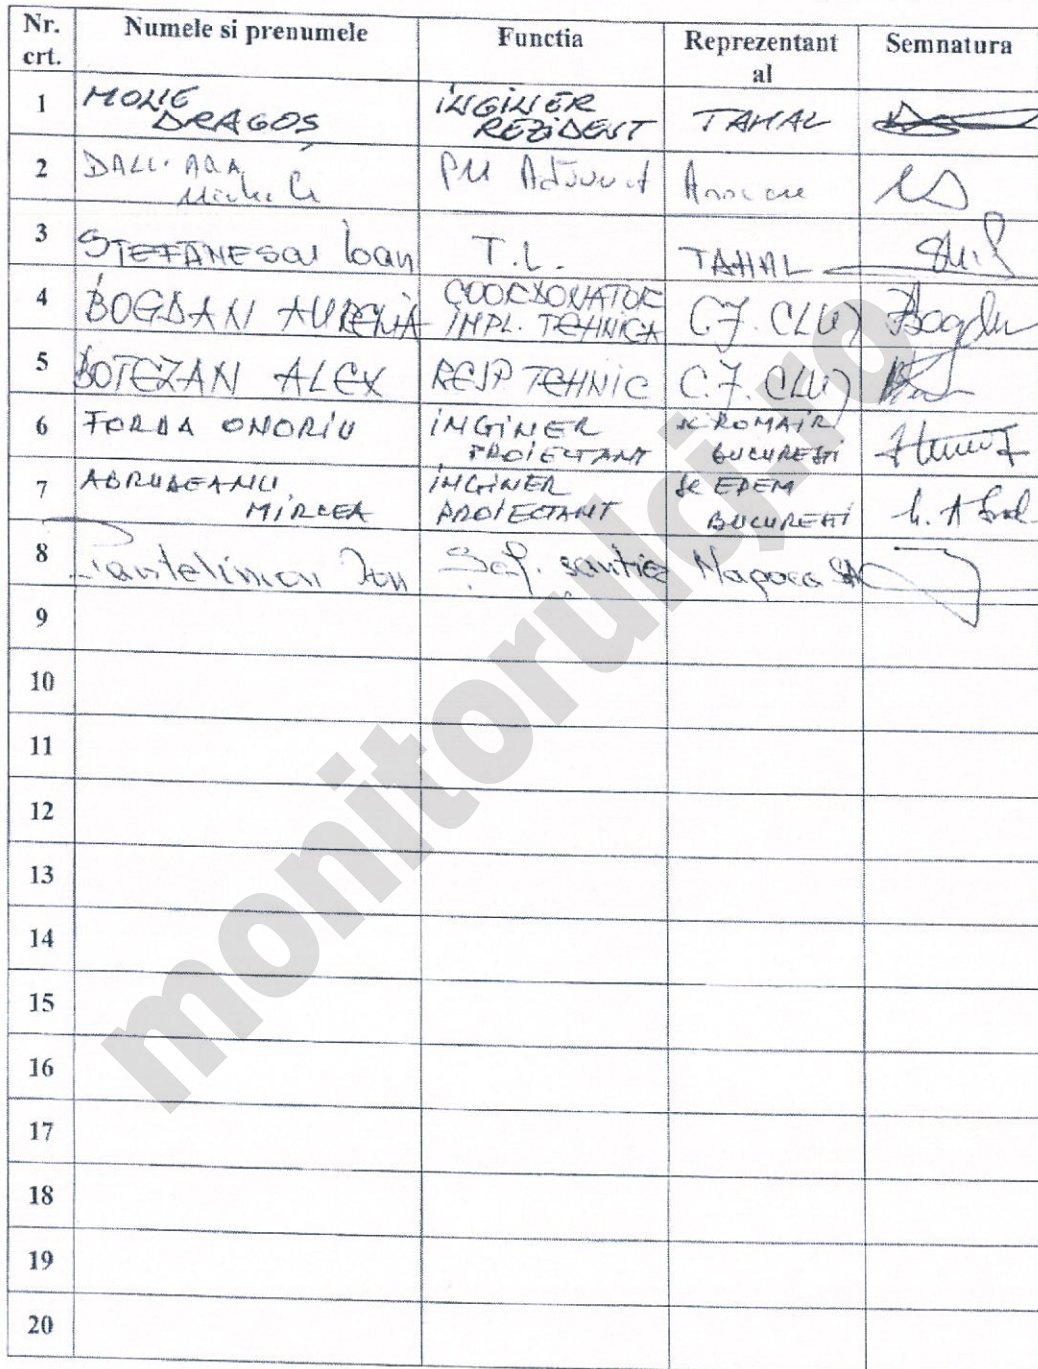 Nr. crt. Numele si prenumele Functia Reprezentant al Semnatura
1 MOLIE DRAGOȘ INGINER REZIDENT TAHAL
2 DALL'ARA PM Adjunct
3 STEFANESCU Ioan T.L. TAHAL
4 BOGDAN AURELIA COORDONATOR IMPL. TEHNICA C.J. CLUJ Bogdan
5 BOTEZAN ALEX RESP TEHNIC C.J. CLUJ
6 ONORIU INGINER PROIECTANT SC ROMAIR BUCUREȘTI
7 ABRUDEANU MIRCEA INGINER PROIECTANT SC EPEM BUCUREȘTI
8 Pantelimon Ion Sef. santier Napoca SA
9
10
11
12
13
14
15
16
17
18
19
20
monitorulcj.ro